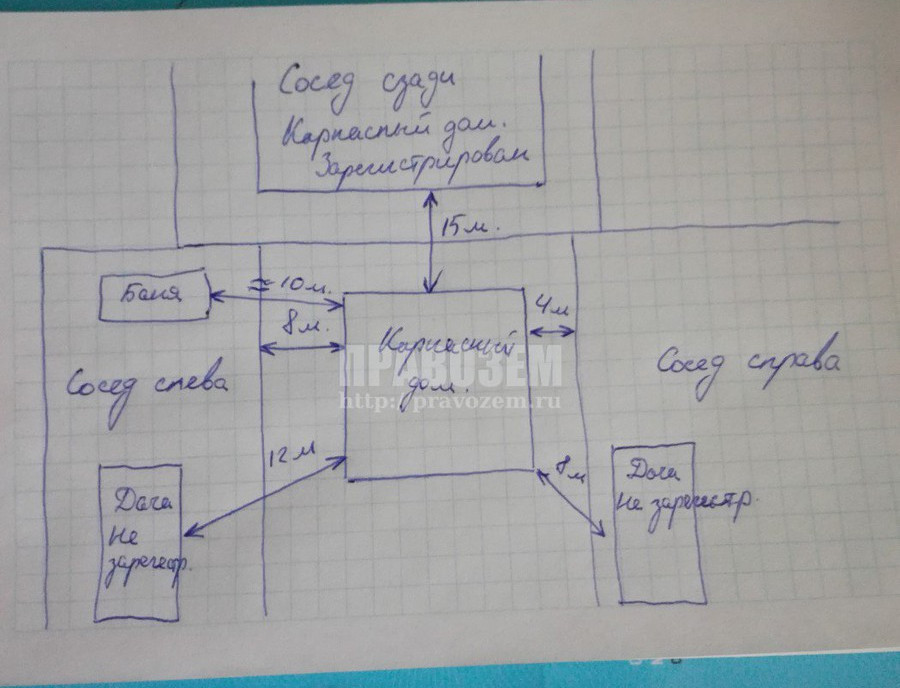 Сосед сзади
Каркасный дом.
Зарегистрирован
15м.
Баня
≈10м.
8м.
4м
Каркасный
дом.
Сосед слева
Сосед справа
ПРАВОЗЕМ
http://pravozem.ru
12м
8м
Дача
Не
зарегестр.
Дача
Не зарегистр.